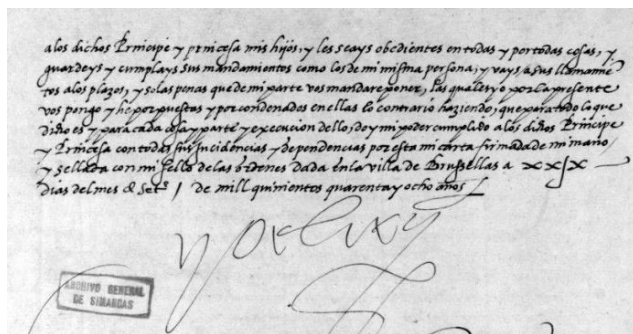 a los dichos Principe y princesa mis hijos, y les seays obedientes en todas y por todas cosas, y
guardeys y cumplays sus mandamientos como los de mi misma persona; y vays a sus llamamiẽ
tos a los plazos, y so las penas que de mi parte vos mandaren poner, las quales yo por la presente
vos pongo y he por puestas y por condenados en ellas lo contrario haziendo, que para todo lo que
dicho es y para cada cosa y parte y execucion dello, doy mi poder cumplido a los dichos Principe
y Princesa con todas sus incidencias y dependencias por esta mi carta firmada de mi mano
y sellada con mi sello de las ordenes dada en la villa de Brussellas a xxjx
dias del mes de Set.e de mill quinientos quarenta y ocho años
yo el rey
ARCHIVO GENERAL
DE SIMANCAS